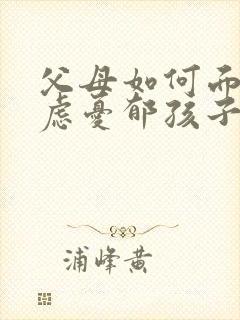 父母如何
虑憂郁孩子
浦峰黄